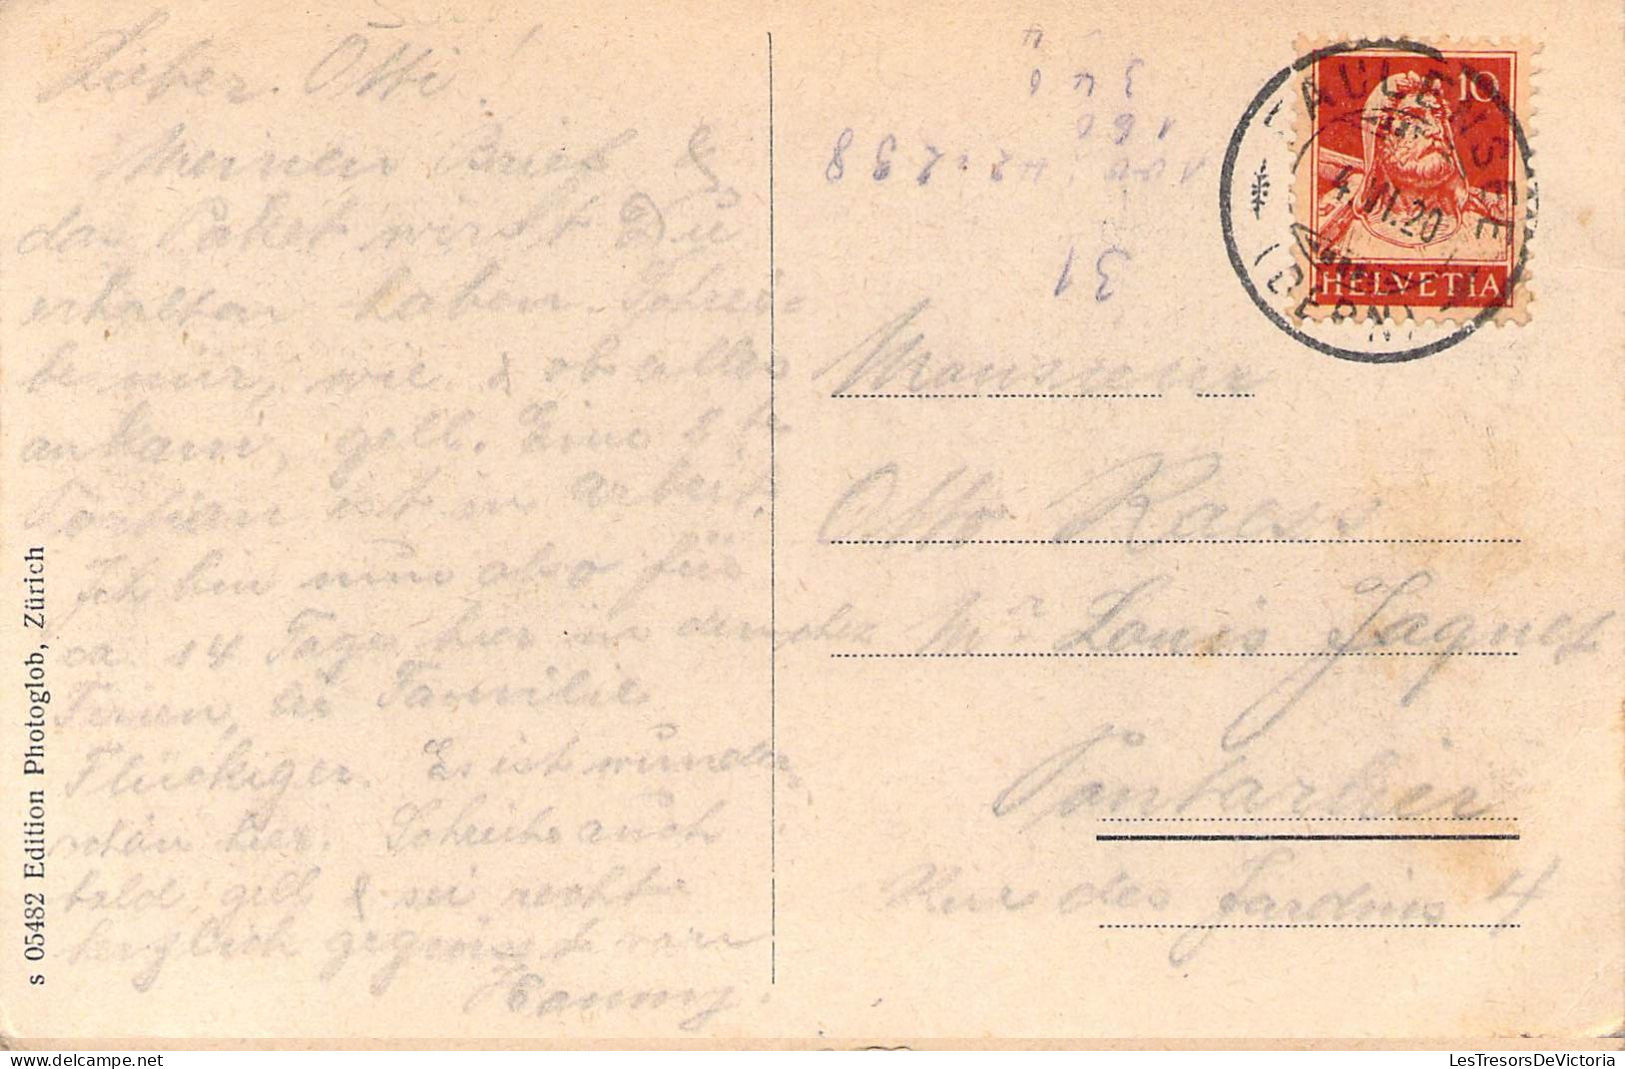 Lieber Otti!
Meinen Brief &
das Paket wirst Du
erhalten haben. Schrei-
be mir, wie & ob alles
ankam, gell. Eine 2te
Portion ist in Arbeit.
Ich bin nun also für
ca. 14 Tage hier in den
Ferien, bei Familie
Flückiger. Es ist wunder-
schön hier. Schreibe auch
bald, gell & sei recht
herzlich gegrüsst von
Hanny.
s 05482 Edition Photoglob, Zürich
31
10
HELVETIA
FAULENSEE
4.VII.20
(BERN)
Monsieur
Otto Raess
chez Mr Louis Jaquet
Pontarlier
Rue des Jardins 4
LesTresorsDeVictoria